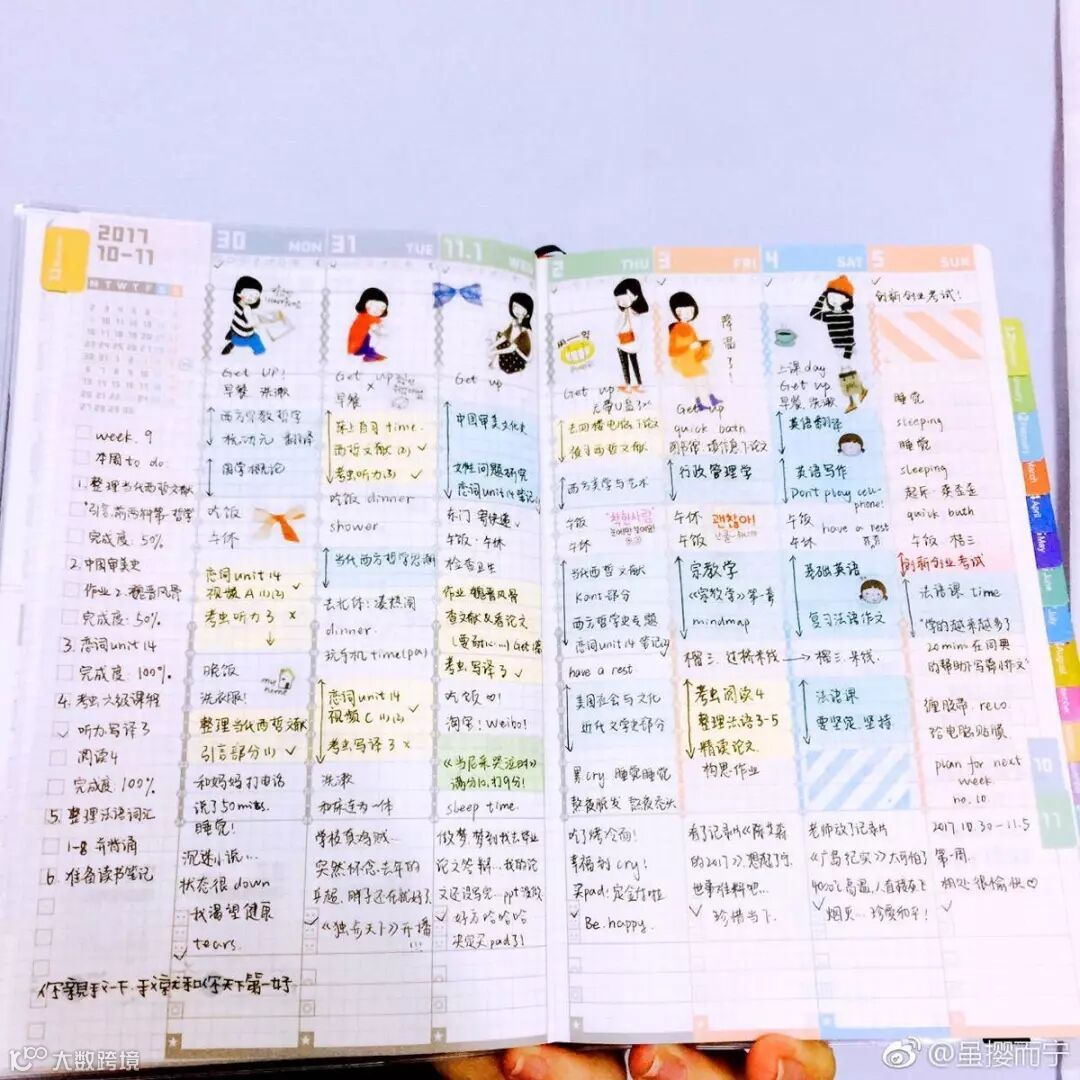 2017
10-11
M T W T F S S
week. 9
本周 to do.
1. 整理当代西哲文献
完成度: 50%
2. 中国审美史
作业2. 魏晋风骨
完成度: 50%
3. 恋词 unit 14
完成度: 100%
4. 考虫六级课程
听力写译3
阅读4
完成度: 100%
5. 整理法语词汇
1-8 背诵
6. 准备读书笔记
30 MON
Get UP!
早餐 洗漱
西方宗教哲学
国学概论
吃饭
午休
恋词 unit 14
视频 A (1)(2)
考虫听力 3 ×
晚饭
my home
洗衣服!
整理当代西哲文献
引言部分 (1) ✓
和妈妈打电话
说了50 mins.
睡觉!
沉迷小说...
状态很 down
我渴望健康
tears.
31 TUE
Get up
×
早餐
床上自习 time.
西哲文献 (2) ✓
考虫听力 3 ✓
吃饭 dinner
shower
当代西方哲学思潮
去北体! 凑热闹
dinner.
玩手机 time (pa)
恋词 unit 14
视频 C (1)(2)
考虫写译 3 ×
洗漱
和床连为一体
学校真鸡贼...
突然怀念去年的
《独步天下》开播
!!!
11.1 WED
Get up
中国审美文化史
女性问题研究
恋词 unit 14 笔记(1)
东门 寄快递 ✓
午饭 · 午休
检查卫生
作业 魏晋风骨
查文献 & 看论文
考虫写译 3 ✓
吃饭 ♡!
淘宝! Weibo!
《当尼采哭泣时》
满分10, 打9分!
sleep time.
做梦, 梦到我去毕业
论文答辩...我的论
好方哈哈哈
决定买 pad 了!
2 THU
Get up
去四楼电脑下论文
西方美学与艺术
午饭
午休
"착한사람
눈에만 보여요"
当代西哲文献
Kant 部分
西方哲学史专题
恋词 unit 14 笔记(2)
have a rest.
美国社会与文化
近代文学史部分
累 cry. 睡觉睡觉
熬夜脱发 熬夜秃头
吃了烤冷面!
幸福到 cry!
买 pad. 定金付啦
Be happy.
3 FRI
降温了!
Get up
quick bath
图书馆. 填信息下论文
行政管理学
午休
午饭
괜찮아!
宗教学
《宗教学》第一章
mindmap
榴三. 过桥米线
考虫阅读 4
整理法语 3-5
精读论文
构思作业
世事难料吧...
珍惜当下.
4 SAT
上课 day
Get up
早餐, 洗漱
英语翻译
英语写作
Don't play cell-
phone!
午饭
午休
have a rest
基础英语
复习法语作文
榴三. 米线.
法语课
要坚定. 坚持
老师放了记录片
《广岛纪实》太可怕了
4000℃高温, 人直接在飞
烟灭... 珍爱和平!
5 SUN
创新创业考试!
睡觉
sleeping
睡觉
sleeping
起床 · 歪歪歪
quick bath
午饭 · 榴三
创新创业考试
法语课 time
"学的越来越多了
20 min 在词典
的帮助下写篇小作文"
缠胶带. relo.
给电脑贴膜
plan for next
week
no. 10.
2017. 10. 30 — 11. 5
第一周.
相处很愉快♡
你亲我一下, 我就和你天下第一好
12
March
April
May
June
July
August
10
11
大数跨境
@虽撄而宁